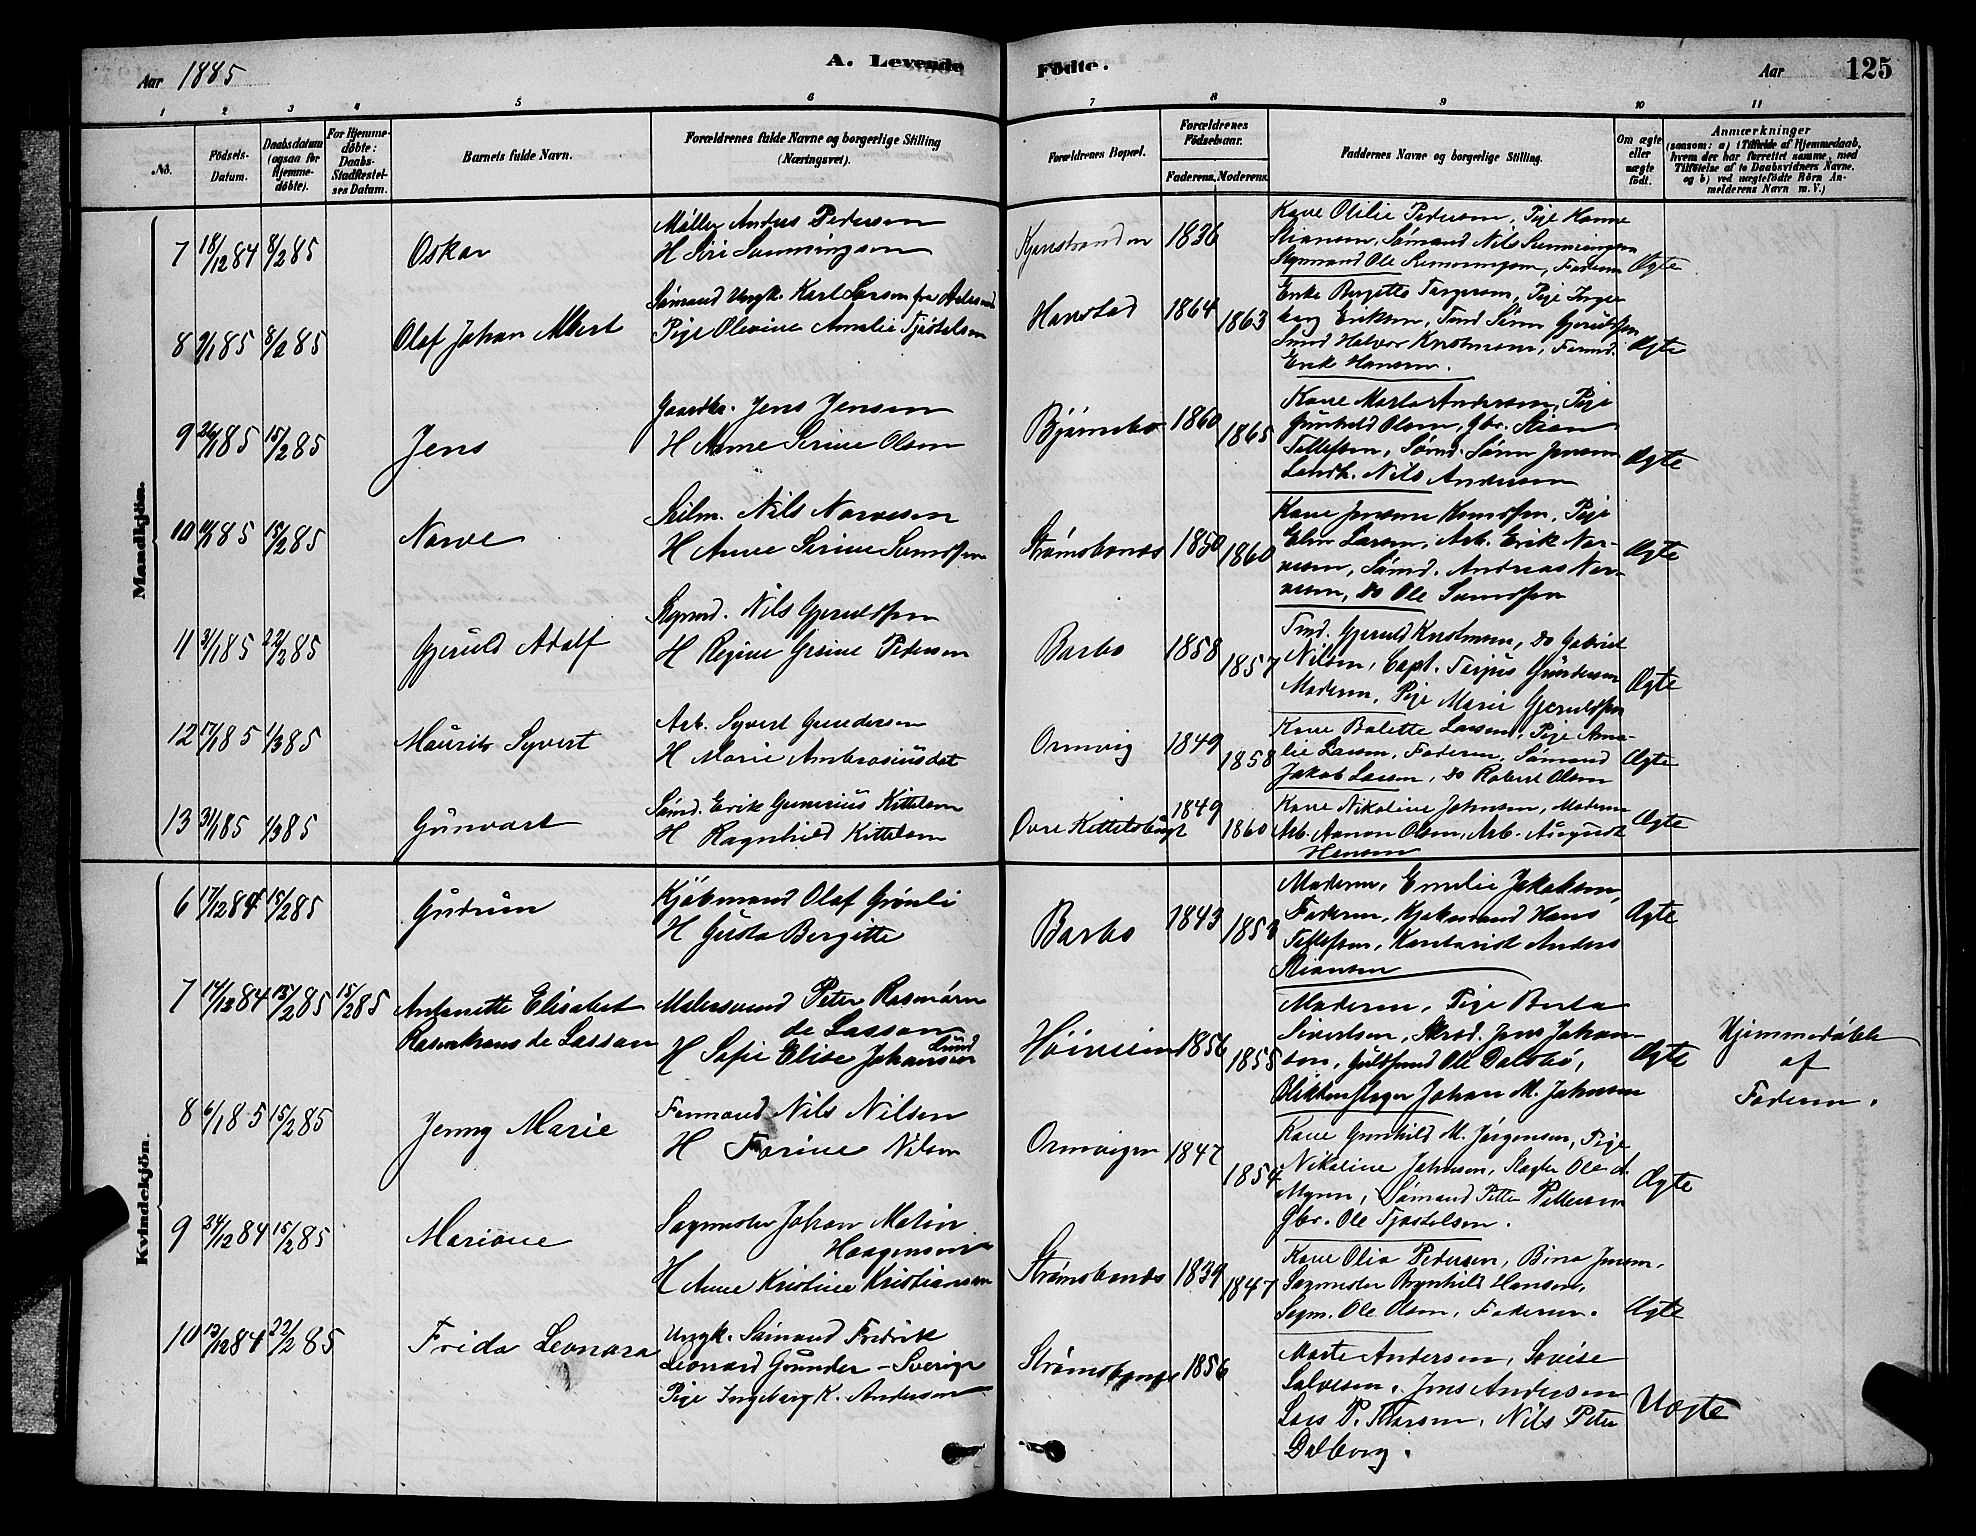 Aar 1885
A. Levende
Födte.
Aar
125
1 2 3 4 5 6 7 8 9 10 11
No.
Födsels-
Datum.
Daabsdatum
(ogsaa for
Hjemme-
döbte).
For Hjemme-
döbte:
Daabs-
Stadfæstel-
ses Datum.
Barnets fulde Navn.
Forældrenes fulde Navne og borgerlige Stilling
(Næringsvei).
Forældrenes Bopæl.
Forældrenes
Födselsaar.
Faderens. Moderens.
Faddernes Navne og borgerlige Stilling.
Om ægte
eller
uægte
födt.
Anmærkninger
(saasom: a) i Tilfælde af Hjemmedaab,
hvem der har forrettet samme, med
Tilföielse af to Daabsvidners Navne,
og b) ved uægtefödte Börn An-
melderens Navn m. V.)
Mandkjön.
7 18/12 84 8/2 85
Oskar
Møller Anders Pedersen
H Siri
1836
Kone Otilie Pedersen, Pige Hanne
Stiansen, Sømand Nils
Styrmand Ole, Faderen
Ægte
8 9/1 85 8/2 85
Olaf Johan Albert
Sømand Ungk. Karl Larsen fra
Pige Olevine Amalie Tjøstelsen
Harstad
1864
1863
Enke Bergitte Terjesen, Pige Inge-
borg Eriksen, Tmd Sønn Gjeruldsen
Smd Halvor Knotmsen, Fmd.
Erik Hansen.
Ægte
9 26/1 85 15/2 85
Jens
Gaardbr. Jens Jensen
H Anne Serine Olsen
Bjørnebo
1860
1865
Kone Marta Andersen, Pige
Gunhild Olsen, Gbr. Stian
Tellefsen, Sømd. Sønn Jensen
Landh. Nils Andersen
Ægte
10 11/1 85 15/2 85
Narve
Seilm. Nils Narvesen
H Anne Serine
Strømsbunes
1850
1860
Kone, Pige
Elen Larsen, Arb. Erik Nar-
vesen, Sømd. Andreas Nar-
vesen, Do Ole
Ægte
11 31/1 85 22/2 85
Gjeruld Adolf
Styrmd. Nils Gjeruldsen
H Regine Grine Pedersen
Barbo
1858
1857
Tmd. Gjeruld Knotmsen, Do Gabriel
Nilsen, Capt. Terjus Gundersen
Moderen, Pige Marie Gjeruldsen
Ægte
12 17/1 85 1/3 85
Mauritz Syvert
Arb. Syvert Gundersen
H Marie Ambrosiusdat
Ormvig
1849
1858
Kone Bolette Larsen, Pige Ama-
lie Larsen, Faderen, Sømand
Jakob Larsen, Do Robert Olsen
Ægte
13 31/1 85 1/3 85
Gunvart
Sømd. Erik Gunerius Kittelsen
H Ragnhild Kittelsen
Øvre Kittelsbugt
1849
1860
Kone Nikoline Johnsen, Moderen
Arb. Aanon Olsen, Arb. August
Hansen
Ægte
Kvindekjön.
6 17/12 84 15/2 85
Gudrun
Kjøbmand Olaf Grønli
H Gusta Bergitte
Barbo
1843
Moderen, Emilie Jakobsen,
Faderen, Kjøbmand Hans
Tellefsen, Kontorist Anders
Stiansen
Ægte
7 14/12 84 15/2 85 15/2 85
Antonette Elisabet
Rosenkrans de Lasson
Malersvend Peter Rasmørn
de Lasson
H Sofie Elise Johansen
Lund
1856
1855
Moderen, Pige Berta
Sivertsen, Skræd. Jens Johan-
sen, Guldsmd Ole Dalsbø,
Blikkenslager Johan M. Johnsen
Ægte
Hjemmedøbt
af
Faderen.
8 6/1 85 15/2 85
Jenny Marie
Fermand Nils Nilsen
H Torine Nilsen
Ormvigen
1847
1854
Kone Gunhild M. Jørgensen, Pige
Nikoline Johnsen, Slagter Ole A.
Myren, Sømand Petter Pettersen
Gbr. Ole Tjøstelsen.
Ægte
9 24/12 84 15/2 85
Mariane
Sagmester Johan Malin
Haagensen
H Anne Kristine Kristiansen
Strømsbunes
1839
1847
Kone Olia Pedersen, Bina Jensen,
Sagmester Brynhild Hansen,
Sagm. Ole Olsen, Faderen.
Ægte
10 13/12 84 22/2 85
Frida Leonora
Ungk. Sømand Fredrik
Leonard Grunder - Sverige
Pige Ingeborg K. Andersen
1856
Marte Andersen, Lovise
Salvesen, Jens Andersen
Lars P. Larsen, Nils Peter
Dalborg.
Uægte